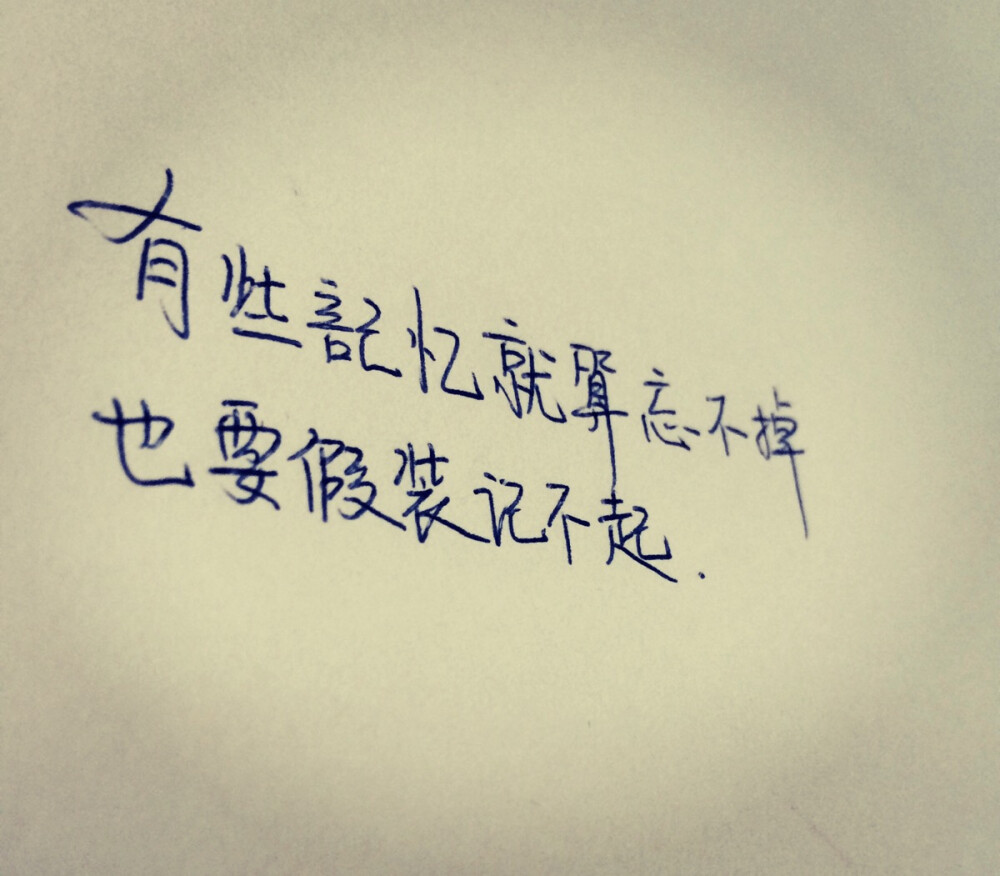 有些記忆就算忘不掉
也要假装记不起.